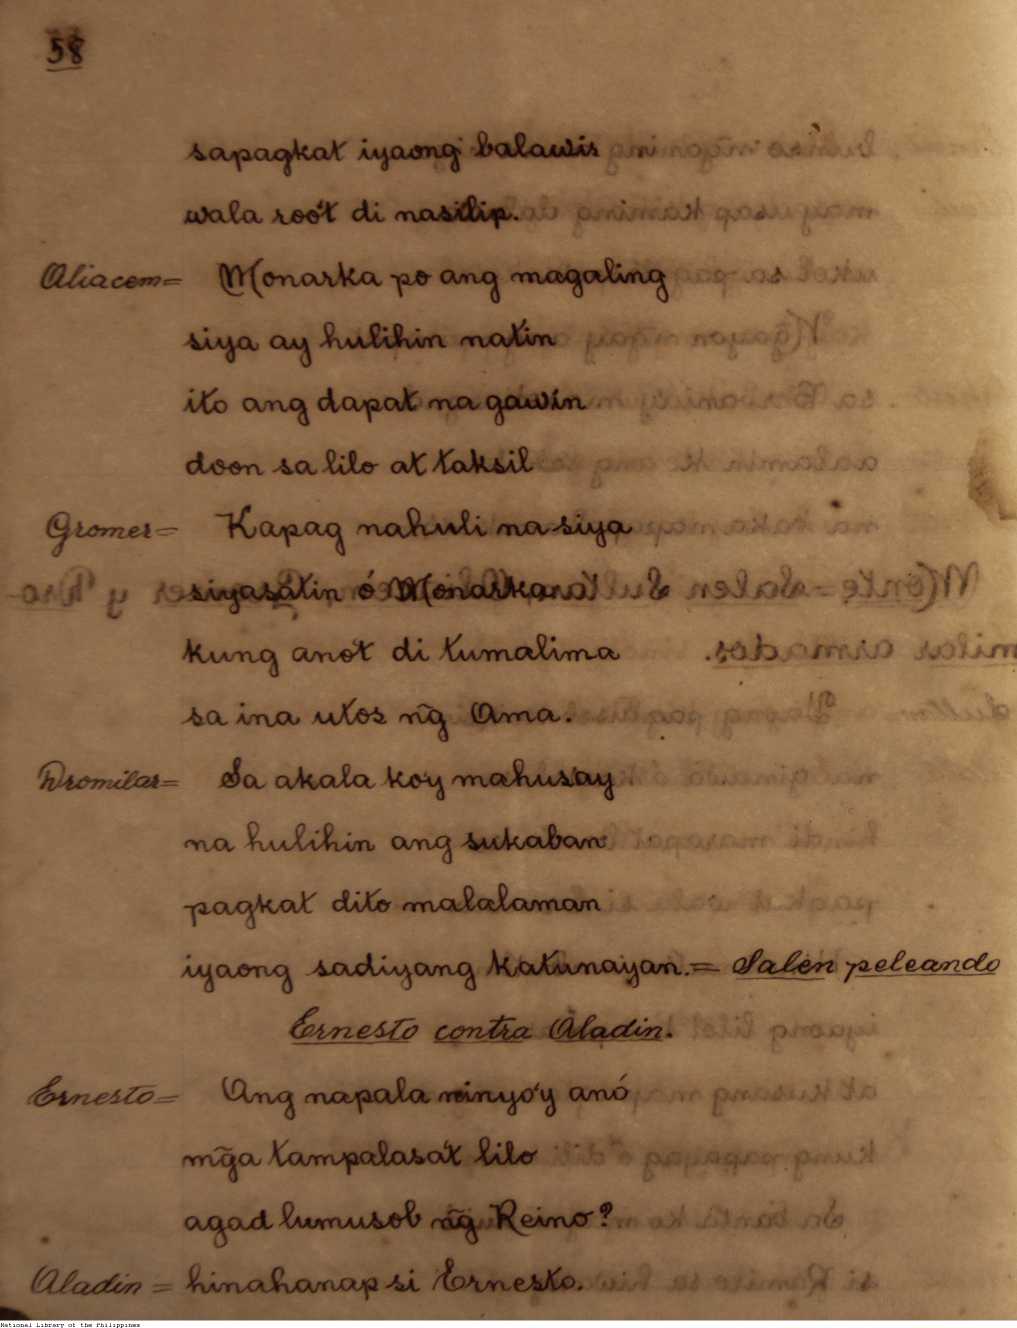 58
sapagkat iyaong balawis
wala roo't di nasilip.
Aliacem= Monarka po ang magaling
siya ay hulihin natin
ito ang dapat na gawin
doon sa lilo at taksil
Gromer= Kapag nahuli na siya
siyasatin ó Monarka
kung ano't di tumalima
sa ina utos ng̃ Ama.
Dromilar= Sa akala ko'y mahusay
na hulihin ang sukaban
pagkat dito malalaman
iyaong sadiyang katunayan.= Salen peleando
Ernesto contra Aladin.
Ernesto= Ang napala ninyo'y anó
mg̃a tampalasa't lilo
agad lumusob ng̃ Reino?
Aladin= hinahanap si Ernesto.
National Library of the Philippines